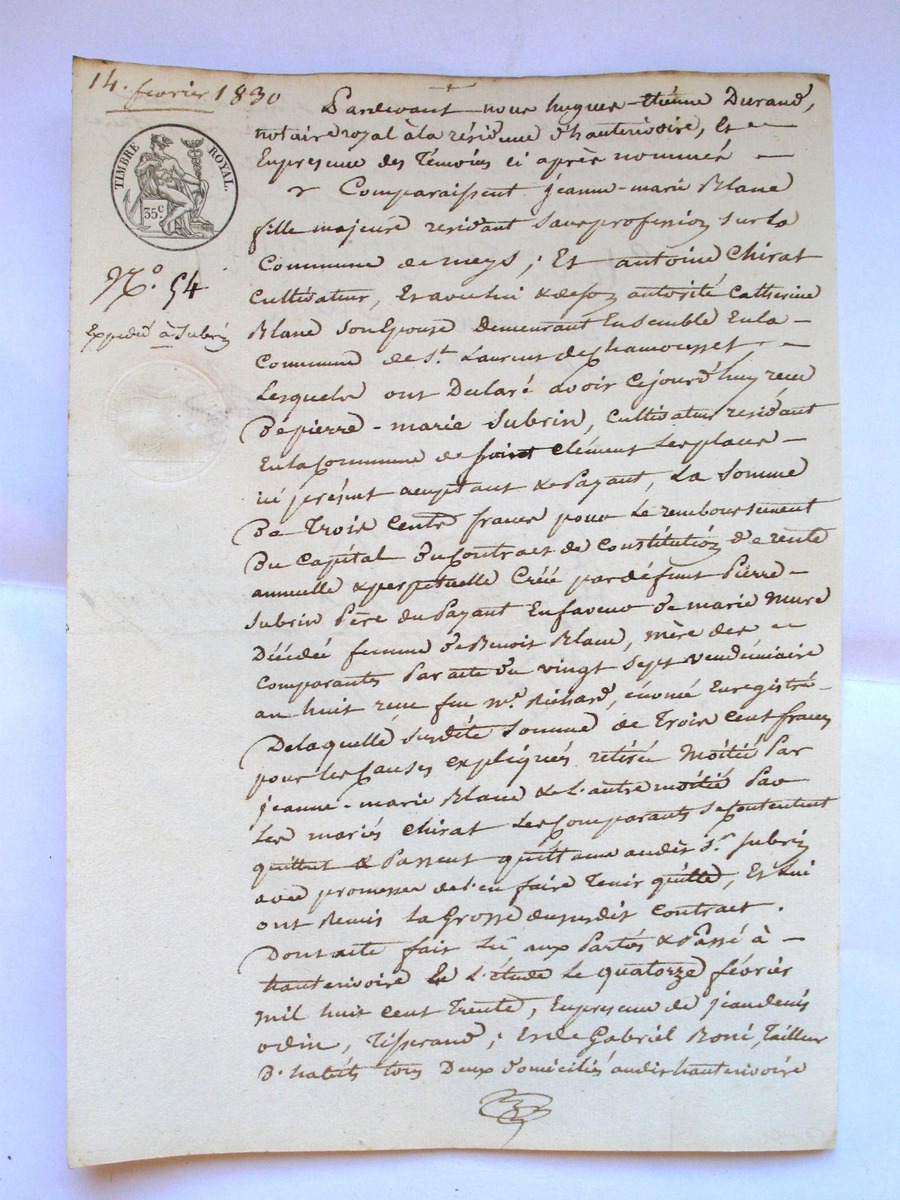 14. février 1830
TIMBRE ROYAL.
35c
N.° 54
Expedié à Subrin
Pardevant nous hugues-étienne Durand,
notaire royal à la résidence d'hauterivoire, Et
En presence des Témoins ci après nommés
Comparaissent jeanne-marie Blanc
fille majeure residant sans profession sur la
Commune de meys; Et antoine Chirat
Cultivateur, Et avec lui & de son autorité Catherine
Blanc son Epouse demeurant Ensemble En la
Commune de St. Laurent de Chamousset
Lesquels ont Déclaré avoir Cejourd'huy recu
De pierre-marie Subrin, Cultivateur residant
En la Commune de saint Clément Les places
ici présent acceptant & Payant, La Somme
De Trois Cents francs pour Le remboursement
Du Capital du Contract de Constitution de rente
annuelle & perpetuelle Créée par défunt Pierre
Subrin Père du Payant En faveur de marie Mure
Décédée femme de Benoit Blanc, mère des
Comparants Par acte du vingt sept vendémiaire
an huit recu feu Me. Richard, énoncé Enregistré
De laquelle Susdite Somme de Trois Cent francs
pour les Causes expliquées retirée Moitié Par
jeanne-marie Blanc & L'autre moitié Par
Les mariés Chirat Les Comparants Se Contentent
quittent & Passent quittance audit Sr. Subrin
avec promesse de l'en faire Tenir quitte, Et Lui
ont Remis La Grosse dususdit Contract.
Dont acte fait Lu aux Parties & Passé à
hauterivoire En L'étude Le quatorze février
mil huit cent Trente, En presence de jean denis
odin, Tisserand; Et de Gabriel Boné, Tailleur
D'habits tous Deux domiciliés audit hauterivoire